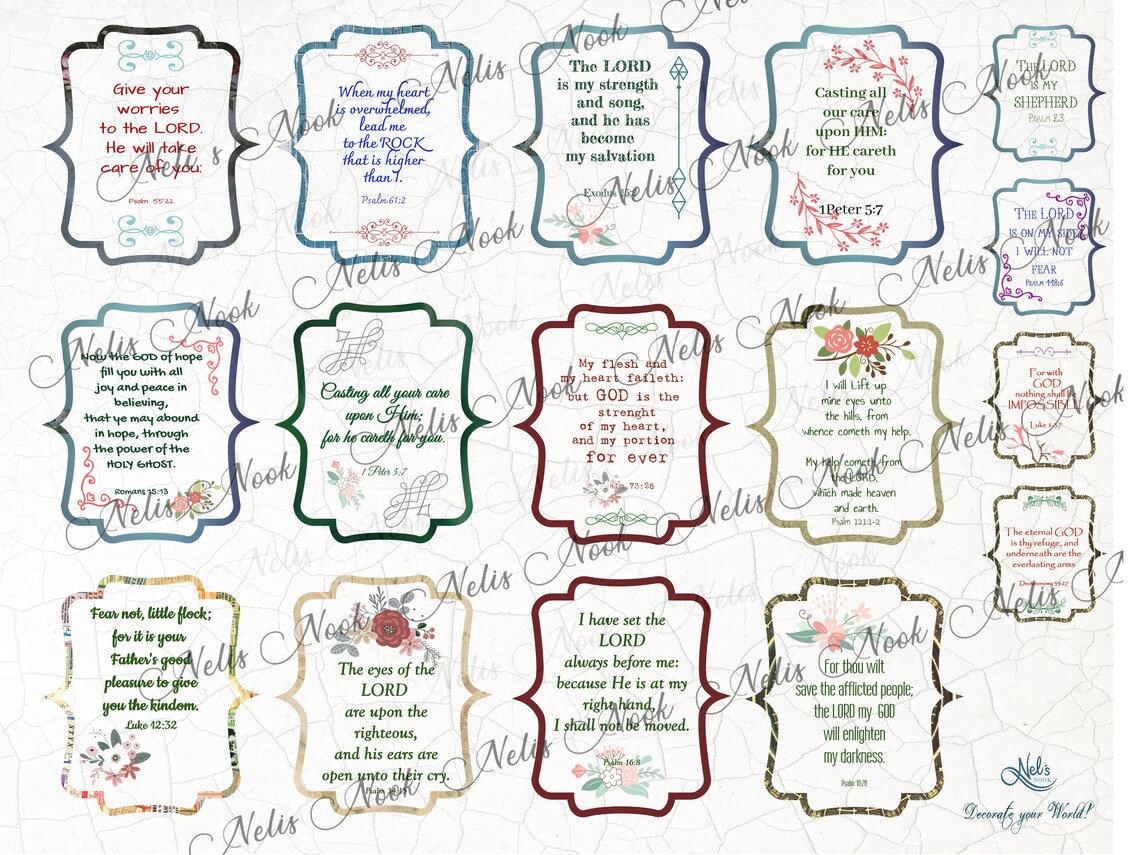 Give your
worries
to the LORD.
He will take
care of you.
Psalm 55:22
When my heart
is overwhelmed,
lead me
to the ROCK
that is higher
than I.
Psalm 61:2
The LORD
is my strength
and song,
and he has
become
my salvation
Exodus 15:2
Casting all
our care
upon HIM:
for HE careth
for you
1Peter 5:7
THE LORD
IS MY
SHEPHERD
PSALM 23
THE LORD
IS ON MY SIDE
I WILL NOT
FEAR
PSALM 118:6
Now the GOD of hope
fill you with all
joy and peace in
believing,
that ye may abound
in hope, through
the power of the
HOLY GHOST.
Romans 15:13
Casting all your care
upon Him;
for he careth for you.
1 Peter 5:7
My flesh and
my heart faileth:
but GOD is the
strenght
of my heart,
and my portion
for ever
73:26
I will Lift up
mine eyes unto
the hills, from
whence cometh my help.
My help cometh from
the LORD,
which made heaven
and earth.
Psalm 121:1-2
For with
GOD
nothing shall be
IMPOSSIBLE.
Luke 1:37
The eternal GOD
is thy refuge, and
underneath are the
everlasting arms
Deuteronomy 33:27
Fear not, little flock;
for it is your
Father's good
pleasure to give
you the kindom.
Luke 12:32
The eyes of the
LORD
are upon the
righteous,
and his ears are
open unto their cry.
Psalm
I have set the
LORD
always before me:
because He is at my
right hand,
I shall not be moved.
Psalm 16:8
For thou wilt
save the afflicted people;
the LORD my GOD
will enlighten
my darkness.
Psalm
Nel's
NOOK
Decorate your World!
Nelis Nook